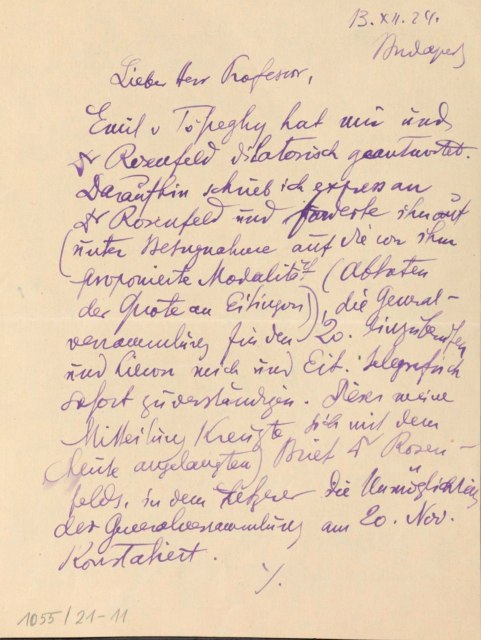 13. XII. 24.
Budapest
Lieber Herr Professor,
Emil v Tószeghy hat mir und
Dr Rosenfeld dilatorisch geantwortet.
Daraufhin schrieb ich express an
Dr Rosenfeld und forderte ihn auf
(unter Bezugnahme auf die von ihm
proponierte Modalität (Abtreten
der Quote an Eitingon)), die General-
versammlung für den 20. einzuberufen
und hievon mich und Eit. telegrafisch
sofort zu verständigen. Diese meine
Mitteilung kreuzte sich mit dem
(heute angelangten) Brief Dr Rosen-
felds, in dem Letzterer die Unmöglichkeit
der Generalversammlung am 20. Nov.
konstatiert.
./.
1055/21-11